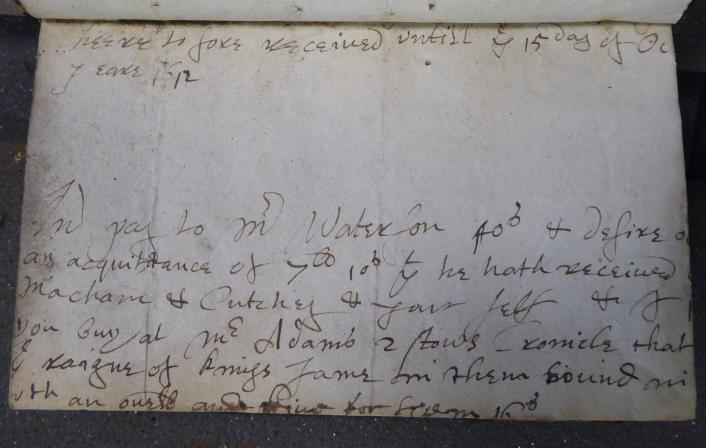 heere to fore received untill ye 15 day of Oc
yeare 1612
And pay to Mr Waterson 40s & desire o
an acquittance of 7lb 10s yt he hath received
Macham & Cutchey & your self & I
you buy at Mr Adams 2 stows Cronicle that
ye raigne of kings James in them bound in
an and for 16s